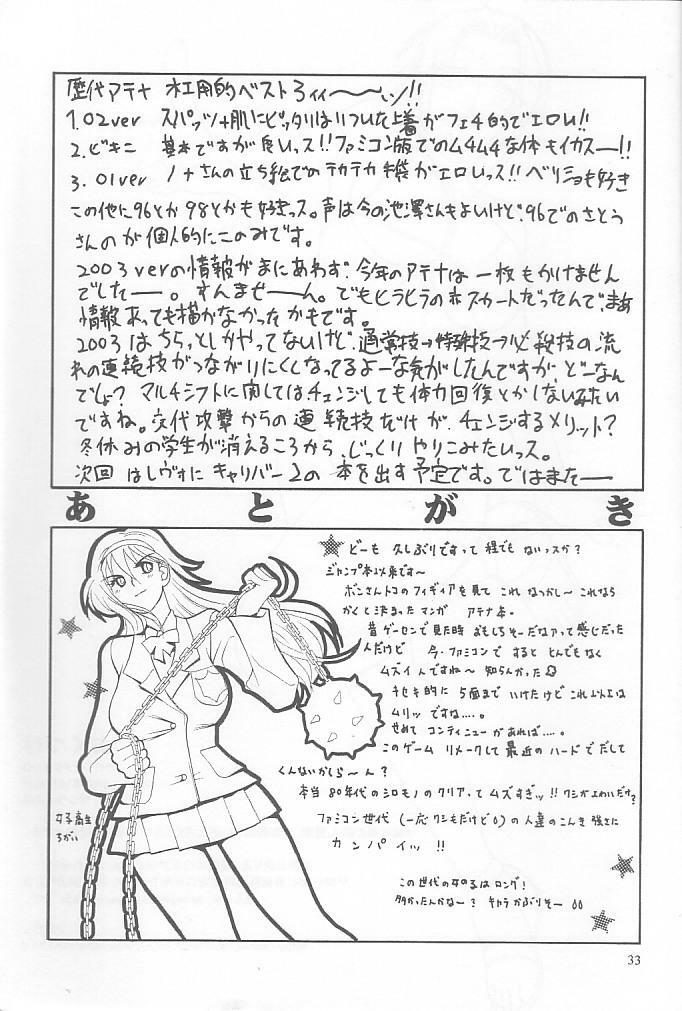 歴代アテナ 木工用的ベスト3ィィ〜〜ッ!!
1.02ver スパッツ+肌にピッタリはりついた上着がフェチ的でエロい!!
2.ビキニ 基本ですが良いっス!!ファミコン版でのムチムチな体もイカスー!!
3.01ver ノナさんの立ち絵でのテカテカ手袋がエロいっス!!ベリショも好き
この他に96とか98とかも好きっス。声は今の池澤さんもよいけど、96でのさとう
さんのが個人的にこのみです。
2003verの情報がまにあわず、今年のアテナは一枚もかけません
でしたー。すんませーん。でもヒラヒラの赤スカートだったんで、まあ
情報あっても描かなかったかもです。
2003はちらっとしかやってないけど、通常技→特殊技→必殺技の流
れの連続技がつながりにくくなってるよーな気がしたんですが、どーなん
でしょ?マルチシフトに関してはチェンジしても体力回復とかしないみたい
ですね。交代攻撃からの連続技だけが、チェンジするメリット?
冬休みの学生が消えるころから、じっくりやりこみたいっス。
次回はレヴォにキャリバー2の本を出す予定です。ではまたー
あとがき
どーも 久しぶりですって程でもないっスか?
ジャンプ本以来です〜
ボンさんトコのフィギィアを見て これ なつかし〜 これなら
かくと決まったマンガ アテナ本。
昔ゲーセンで見た時 おもしろそーだなアって感じだった
んだけど 今・ファミコンで すると とんでもなく
ムズイんですね〜 知らんかった
キセキ的に 5面まで いけたけど これ以上は
ムリッ ですな....。
せめて コンティニューがあれば....。
このゲーム リメークして 最近の ハードで だして
くんないかしら〜ん?
本当 80年代の シロモノの クリアって ムズすぎッ!! ワシがよわいだけ?
ファミコン世代 (一応 ワシもだけど) の 人達の こんき 強さに
カンパイッ !!
女子高生
ちがい
この世代の女の子はロング!
多かったんかなー? キャラ かぶりそー
33